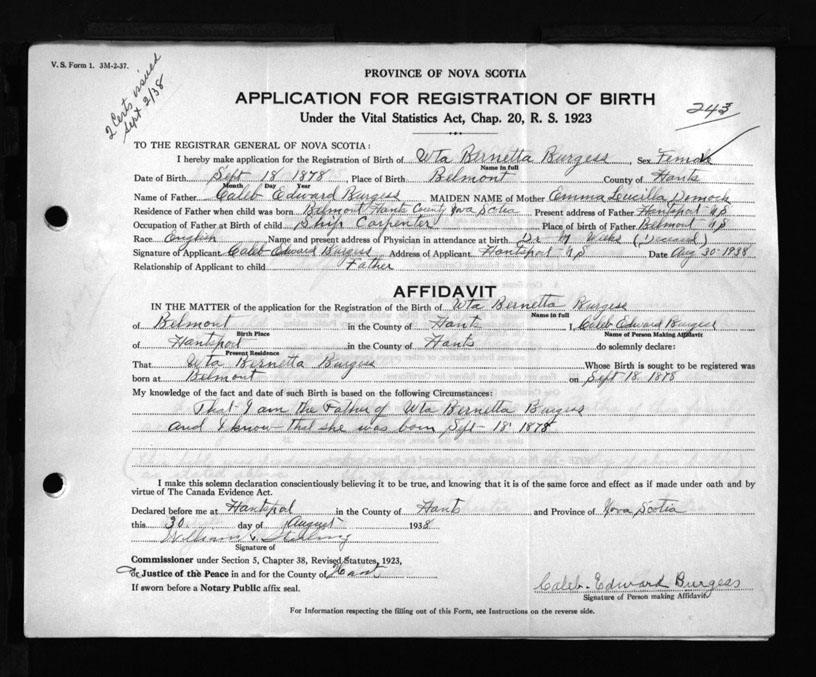 V. S. Form 1. 3M-2-37.
2 Certs issued
Sept 2/38
PROVINCE OF NOVA SCOTIA
APPLICATION FOR REGISTRATION OF BIRTH
243
Under the Vital Statistics Act, Chap. 20, R. S. 1923
TO THE REGISTRAR GENERAL OF NOVA SCOTIA:
I hereby make application for the Registration of Birth of Uta Bernetta Burgess, Sex Female
Name in full
Date of Birth Sept 18 1878 Place of Birth Belmont County of Hants
Month Day Year
Name of Father Caleb Edward Burgess MAIDEN NAME of Mother Emma Demock
Residence of Father when child was born Belmont Hants County Nova Scotia Present address of Father Hantsport N S
Occupation of Father at Birth of child Ship Carpenter Place of birth of Father Belmont N S
Race English Name and present address of Physician in attendance at birth Dr Weeks (Deceased)
Signature of Applicant Caleb Edward Burgess Address of Applicant Hantsport N S Date Aug 30-1938
Relationship of Applicant to child Father
AFFIDAVIT
IN THE MATTER of the application for the Registration of the Birth of Uta Bernetta Burgess
Name in full
of Belmont in the County of Hants I, Caleb Edward Burgess
Birth Place Name of Person Making Affidavit
of Hantsport in the County of Hants do solemnly declare:
Present Residence
That Uta Bernetta Burgess Whose Birth is sought to be registered was
born at Belmont on Sept 18 1878
My knowledge of the fact and date of such Birth is based on the following Circumstances:
That I am the Father of Uta Bernetta Burgess
and I know that she was born Sept 18 1878
I make this solemn declaration conscientiously believing it to be true, and knowing that it is of the same force and effect as if made under oath and by
virtue of The Canada Evidence Act.
Declared before me at Hantsport in the County of Hants and Province of Nova Scotia
this 30 day of August 1938
William Stirling
Signature of
Commissioner under Section 5, Chapter 38, Revised Statutes, 1923,
or Justice of the Peace in and for the County of Hants
If sworn before a Notary Public affix seal.
Caleb Edward Burgess
Signature of Person making Affidavit
For Information respecting the filling out of this Form, see Instructions on the reverse side.